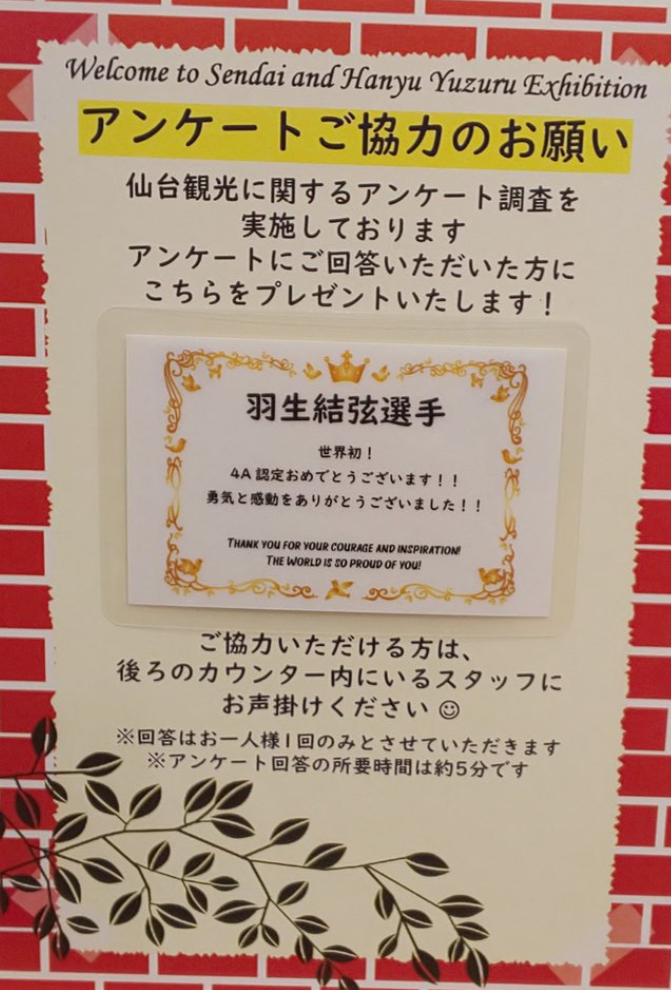 Welcome to Sendai and Hanyu Yuzuru Exhibition
アンケートご協力のお願い
仙台観光に関するアンケート調査を
実施しております
アンケートにご回答いただいた方に
こちらをプレゼントいたします！
羽生結弦選手
世界初！
4A 認定おめでとうございます！！
勇気と感動をありがとうございました！！
THANK YOU FOR YOUR COURAGE AND INSPIRATION!
THE WORLD IS SO PROUD OF YOU!
ご協力いただける方は、
後ろのカウンター内にいるスタッフに
お声掛けください☺
※回答はお一人様1回のみとさせていただきます
※アンケート回答の所要時間は約5分です